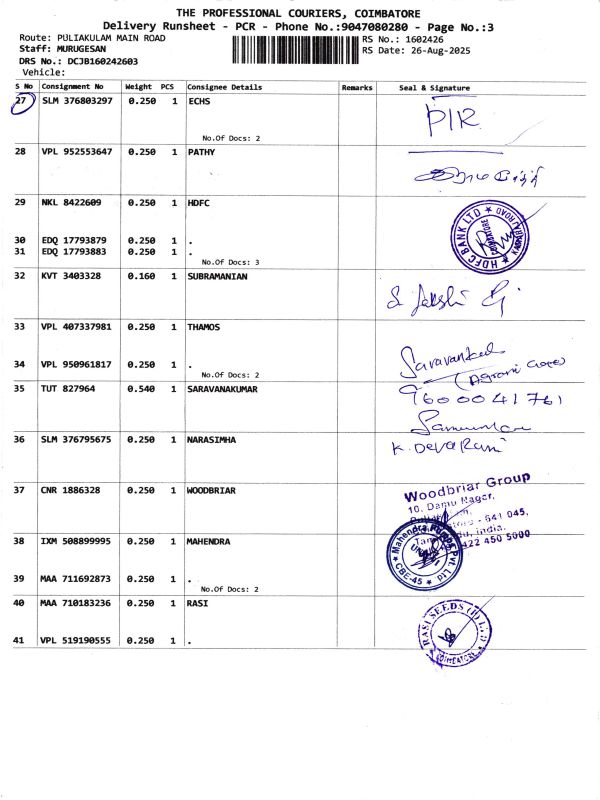 THE PROFESSIONAL COURIERS, COIMBATORE
Delivery Runsheet - PCR - Phone No.:9047080280 - Page No.:3
Route: PULIAKULAM MAIN ROAD
RS No.: 1602426
Staff: MURUGESAN
RS Date: 26-Aug-2025
DRS No.: DCJB160242603
Vehicle:
S No Consignment No Weight PCS Consignee Details Remarks Seal & Signature
27 SLM 376803297 0.250 1 ECHS
No.Of Docs: 2
28 VPL 952553647 0.250 1 PATHY
29 NKL 8422609 0.250 1 HDFC
HDFC BANK LTD
COIMBATORE
30 EDQ 17793879 0.250 1 .
31 EDQ 17793883 0.250 1 .
No.Of Docs: 3
32 KVT 3403328 0.160 1 SUBRAMANIAN
33 VPL 407337981 0.250 1 THAMOS
34 VPL 950961817 0.250 1 .
No.Of Docs: 2
35 TUT 827964 0.540 1 SARAVANAKUMAR
9600041761
36 SLM 376795675 0.250 1 NARASIMHA
K. Deva Rani
37 CNR 1886328 0.250 1 WOODBRIAR
Woodbriar Group
10, Damu Nagar,
- 641 045,
India.
422 450 5000
38 IXM 508899995 0.250 1 MAHENDRA
Mahendra Pumps Pvt. Ltd
CBE-45
39 MAA 711692873 0.250 1 .
No.Of Docs: 2
40 MAA 710183236 0.250 1 RASI
RASI SEEDS (P) LTD
COIMBATORE
41 VPL 519190555 0.250 1 .